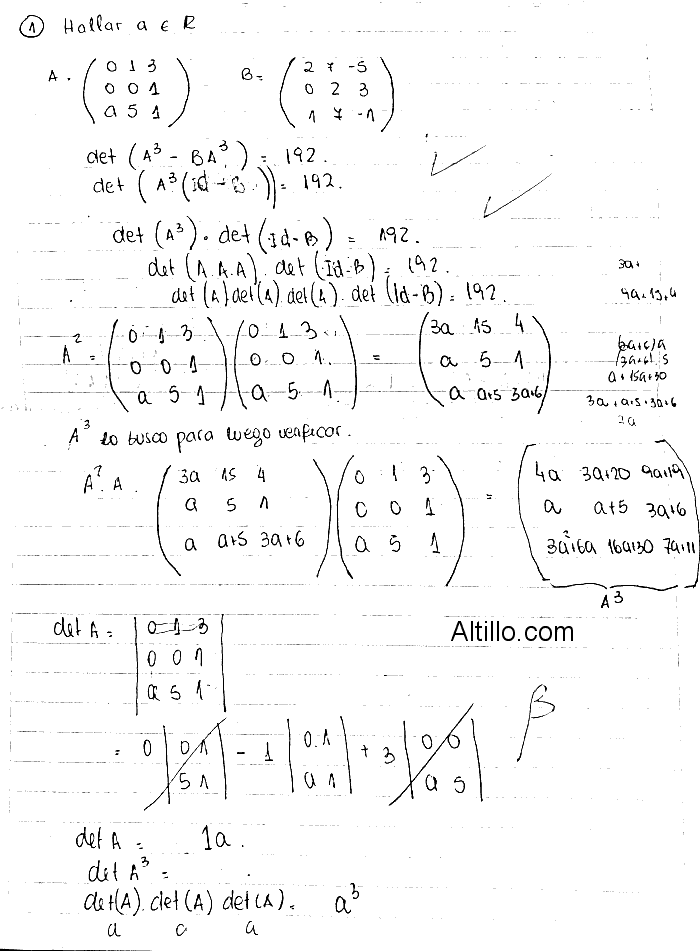 ① Hallar a ∈ R
A = ( 0 1 3 / 0 0 1 / a 5 1 ) B = ( 2 7 -5 / 0 2 3 / 1 7 -1 )
det (A³ - BA³) = 192.
det (A³(Id - B)) = 192.
det (A³) . det (Id-B) = 192.
det (A.A.A) . det (Id-B) = 192.
det (A) det(A) . det(A) . det (Id-B) = 192.
3a+
9a+15+4
A² = ( 0 1 3 / 0 0 1 / a 5 1 ) ( 0 1 3 / 0 0 1 / a 5 1 ) = ( 3a 15 4 / a 5 1 / a a+5 3a+6 )
(3a+6)a
(3a+6).5
a+15a+30
3a+a+5+3a+6
A³ lo busco para luego verificar.
A². A ( 3a 15 4 / a 5 1 / a a+5 3a+6 ) ( 0 1 3 / 0 0 1 / a 5 1 ) = ( 4a 3a+20 9a+19 / a a+5 3a+6 / 3a²+6a 16a+30 7a+11 )
A³
det A = | 0 1 3 / 0 0 1 / a 5 1 |
Altillo.com
= 0 | 0 1 / 5 1 | - 1 | 0 1 / a 1 | + 3 | 0 0 / a 5 |
B
det A = 1a.
det A³ =
det(A) . det(A) det(A) = a³
a a a